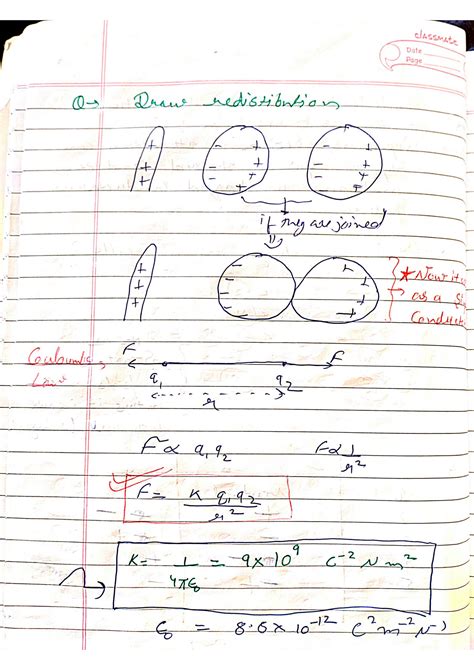 classmate
Date
Page
Q→ Draw redistibution
+ - + - +
+ - + - +
+ - + - +
+ +
if they are joined
+ - +
+ - +
+ - +
- +
* Now it
→ as a
Conduct
Coulumb's
Law
F F
q₁ q₂
r
F ∝ q₁q₂ F ∝ 1/r²
F = K q₁q₂/r²
K = 1/4πε₀ = 9×10⁹ C⁻²Nm²
ε₀ = 8.85×10⁻¹² C²m⁻²N⁻¹